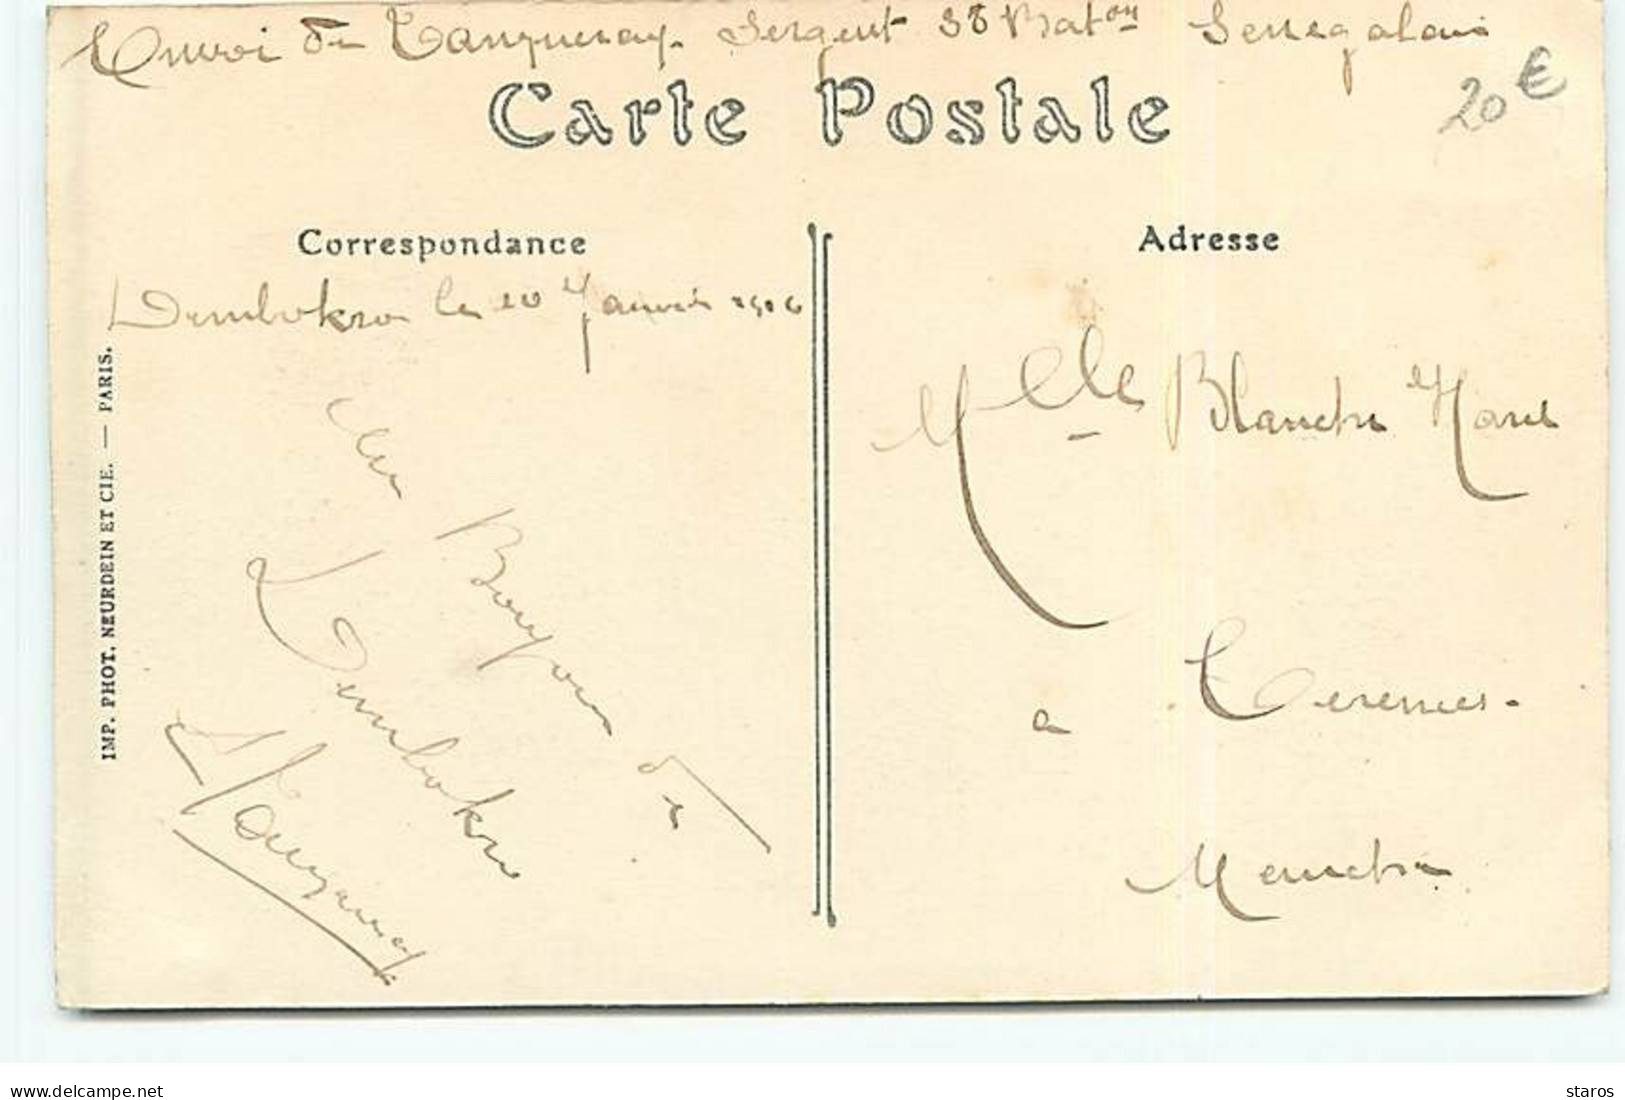 Envoi de Tanqueray Sergent 38 Baton Senegalais
Carte Postale
20€
Correspondance
Adresse
Dimbokro le 20 Janvier 1916
Mlle Blanche Harel
Un Bonjour de
Dimbokro
Tanqueray
a
Manche
IMP. PHOT. NEURDEIN ET CIE. — PARIS.
www.delcampe.net
staros